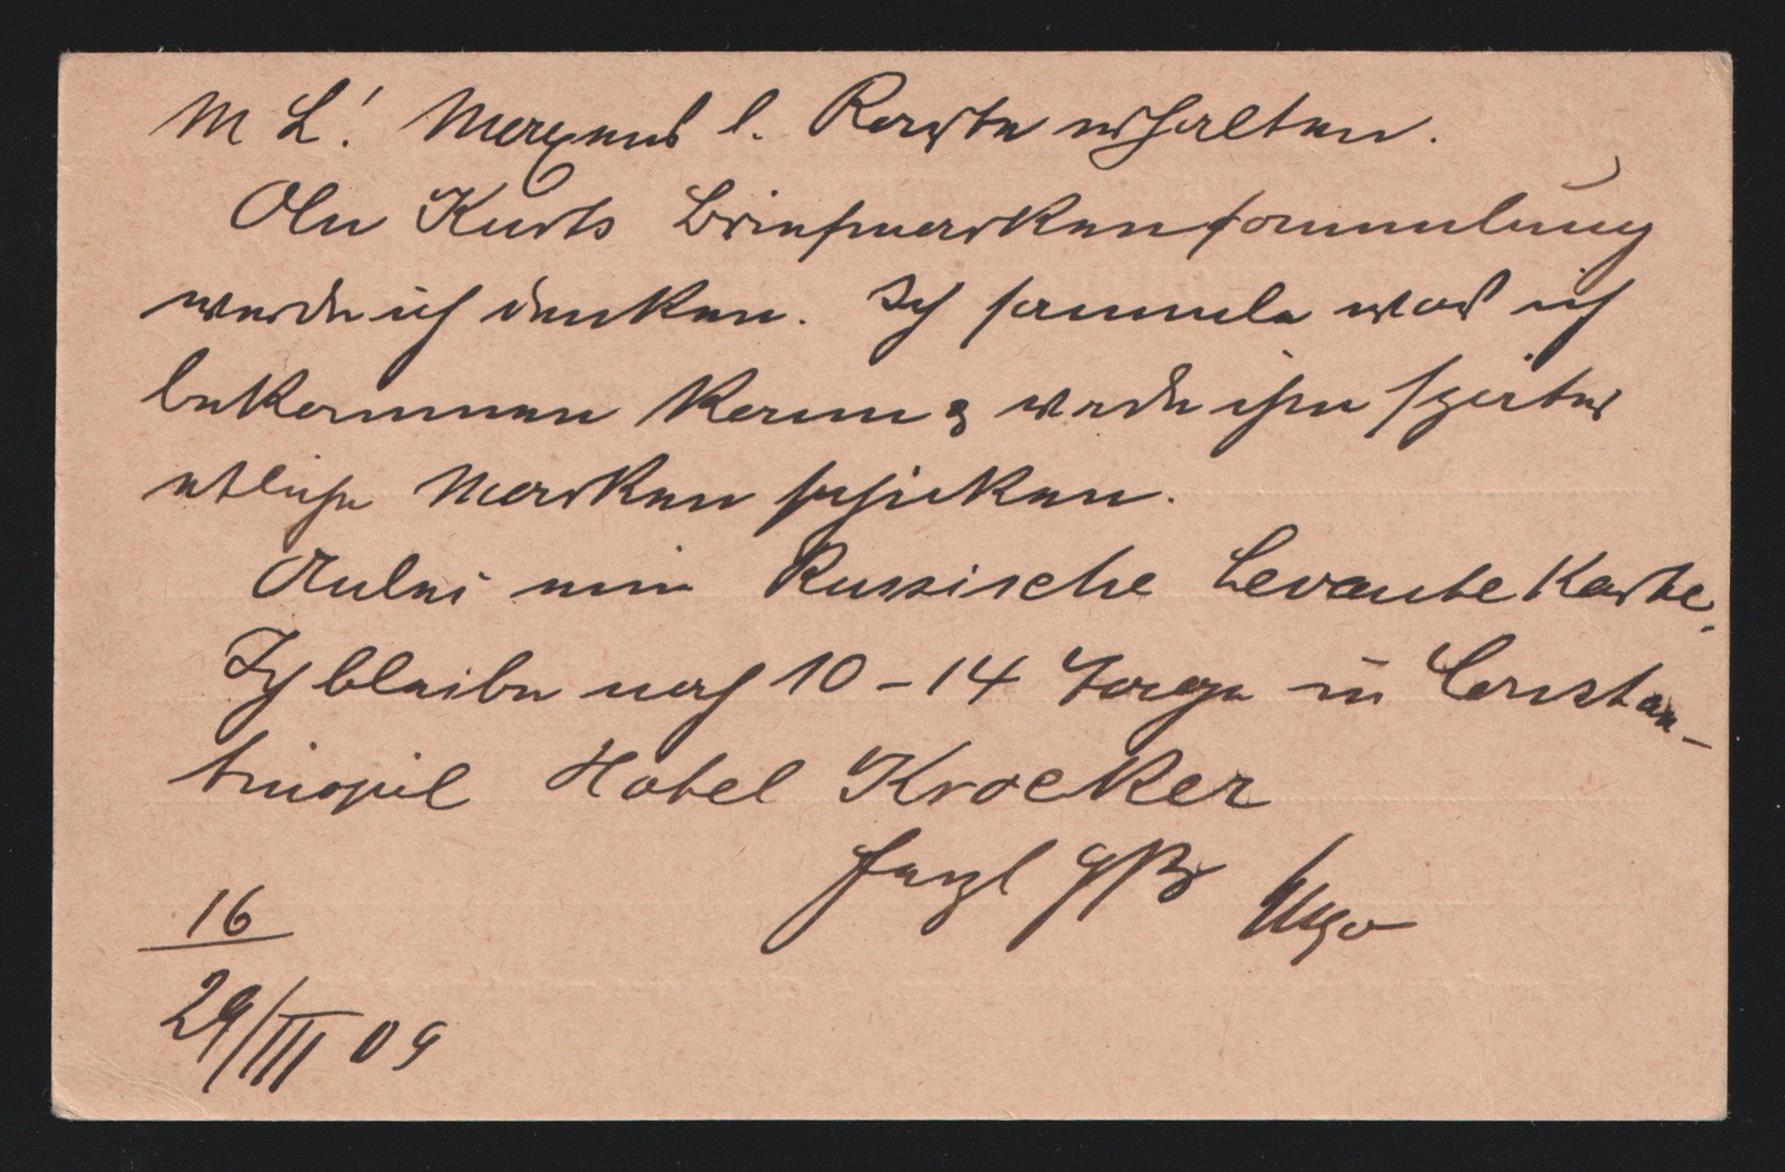 M L! Morgens l. Karte erhalten.
An Kurts Briefmarkensammlung
werde ich denken. Ich sammele was ich
bekommen kann & werde ihm später
etliche Marken schicken.
Anbei eine Russische Levante Karte.
Ich bleibe noch 10-14 Tage in Constan-
tinopel Hotel Kroecker
Herzl Hugo
16
29/III 09